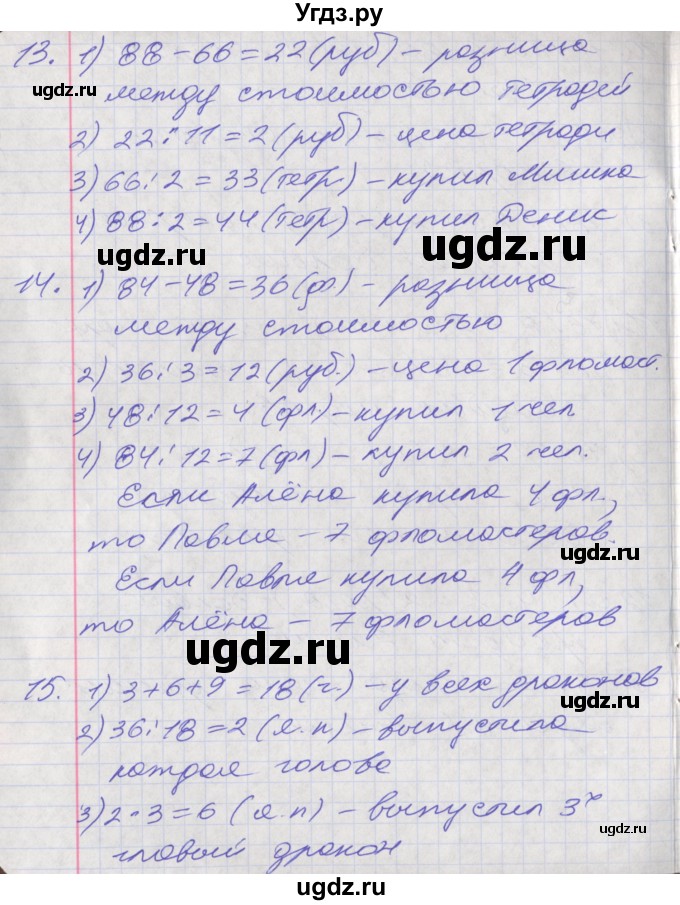 Угдз.ру
13. 1) 88 – 66 = 22 (руб) – разница
между стоимостью тетрадей
2) 22 : 11 = 2 (руб) – цена тетради
3) 66 : 2 = 33 (тетр) – купил Мишка
4) 88 : 2 = 44 (тетр) – купил Денис
ugdz.ru ugdz.ru
14. 1) 84 – 48 = 36 (ф) – разница
между стоимостью
2) 36 : 3 = 12 (руб.) – цена 1 фломаст.
3) 48 : 12 = 4 (фл.) – купил 1 чел
ugdz.ru
4) 84 : 12 = 7 (фл) – купил 2 чел.
Если Алёна купила 4 фл.,
то – 7 фломастеров.
ugdz.ru
Если купила 4 фл,
то Алёна – 7 фломастеров
ugdz.ru
15. 1) 3 + 6 + 9 = 18 (г.) – у всех драконов
2) 36 : 18 = 2 (я.п) – выпустила
каждая голова
ugdz.ru
3) 2 · 3 = 6 (я.п) – выпустил 3х
главый дракон
ugdz.ru ugdz.ru